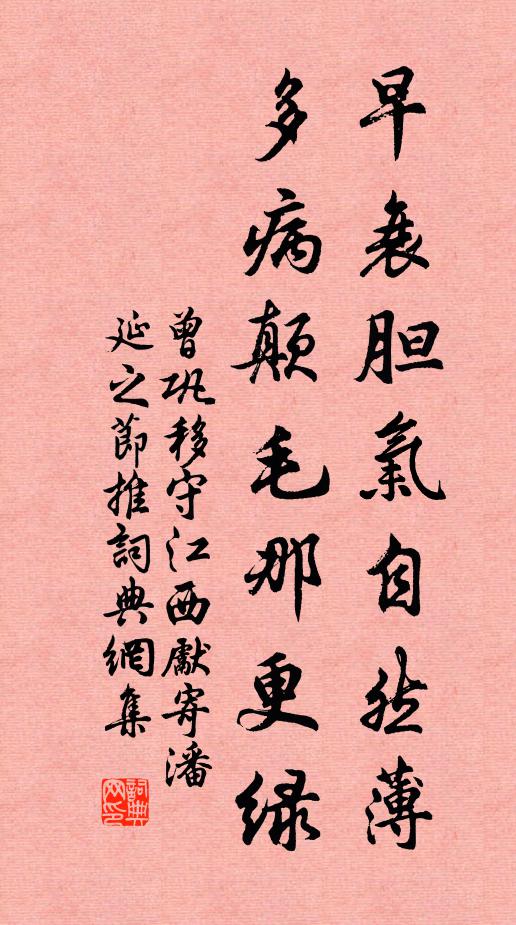 早衰胆氣自然薄
多病顛毛那更緑
曾巩移守江西獻寄潘
延之節推詞典網集
詞典網印